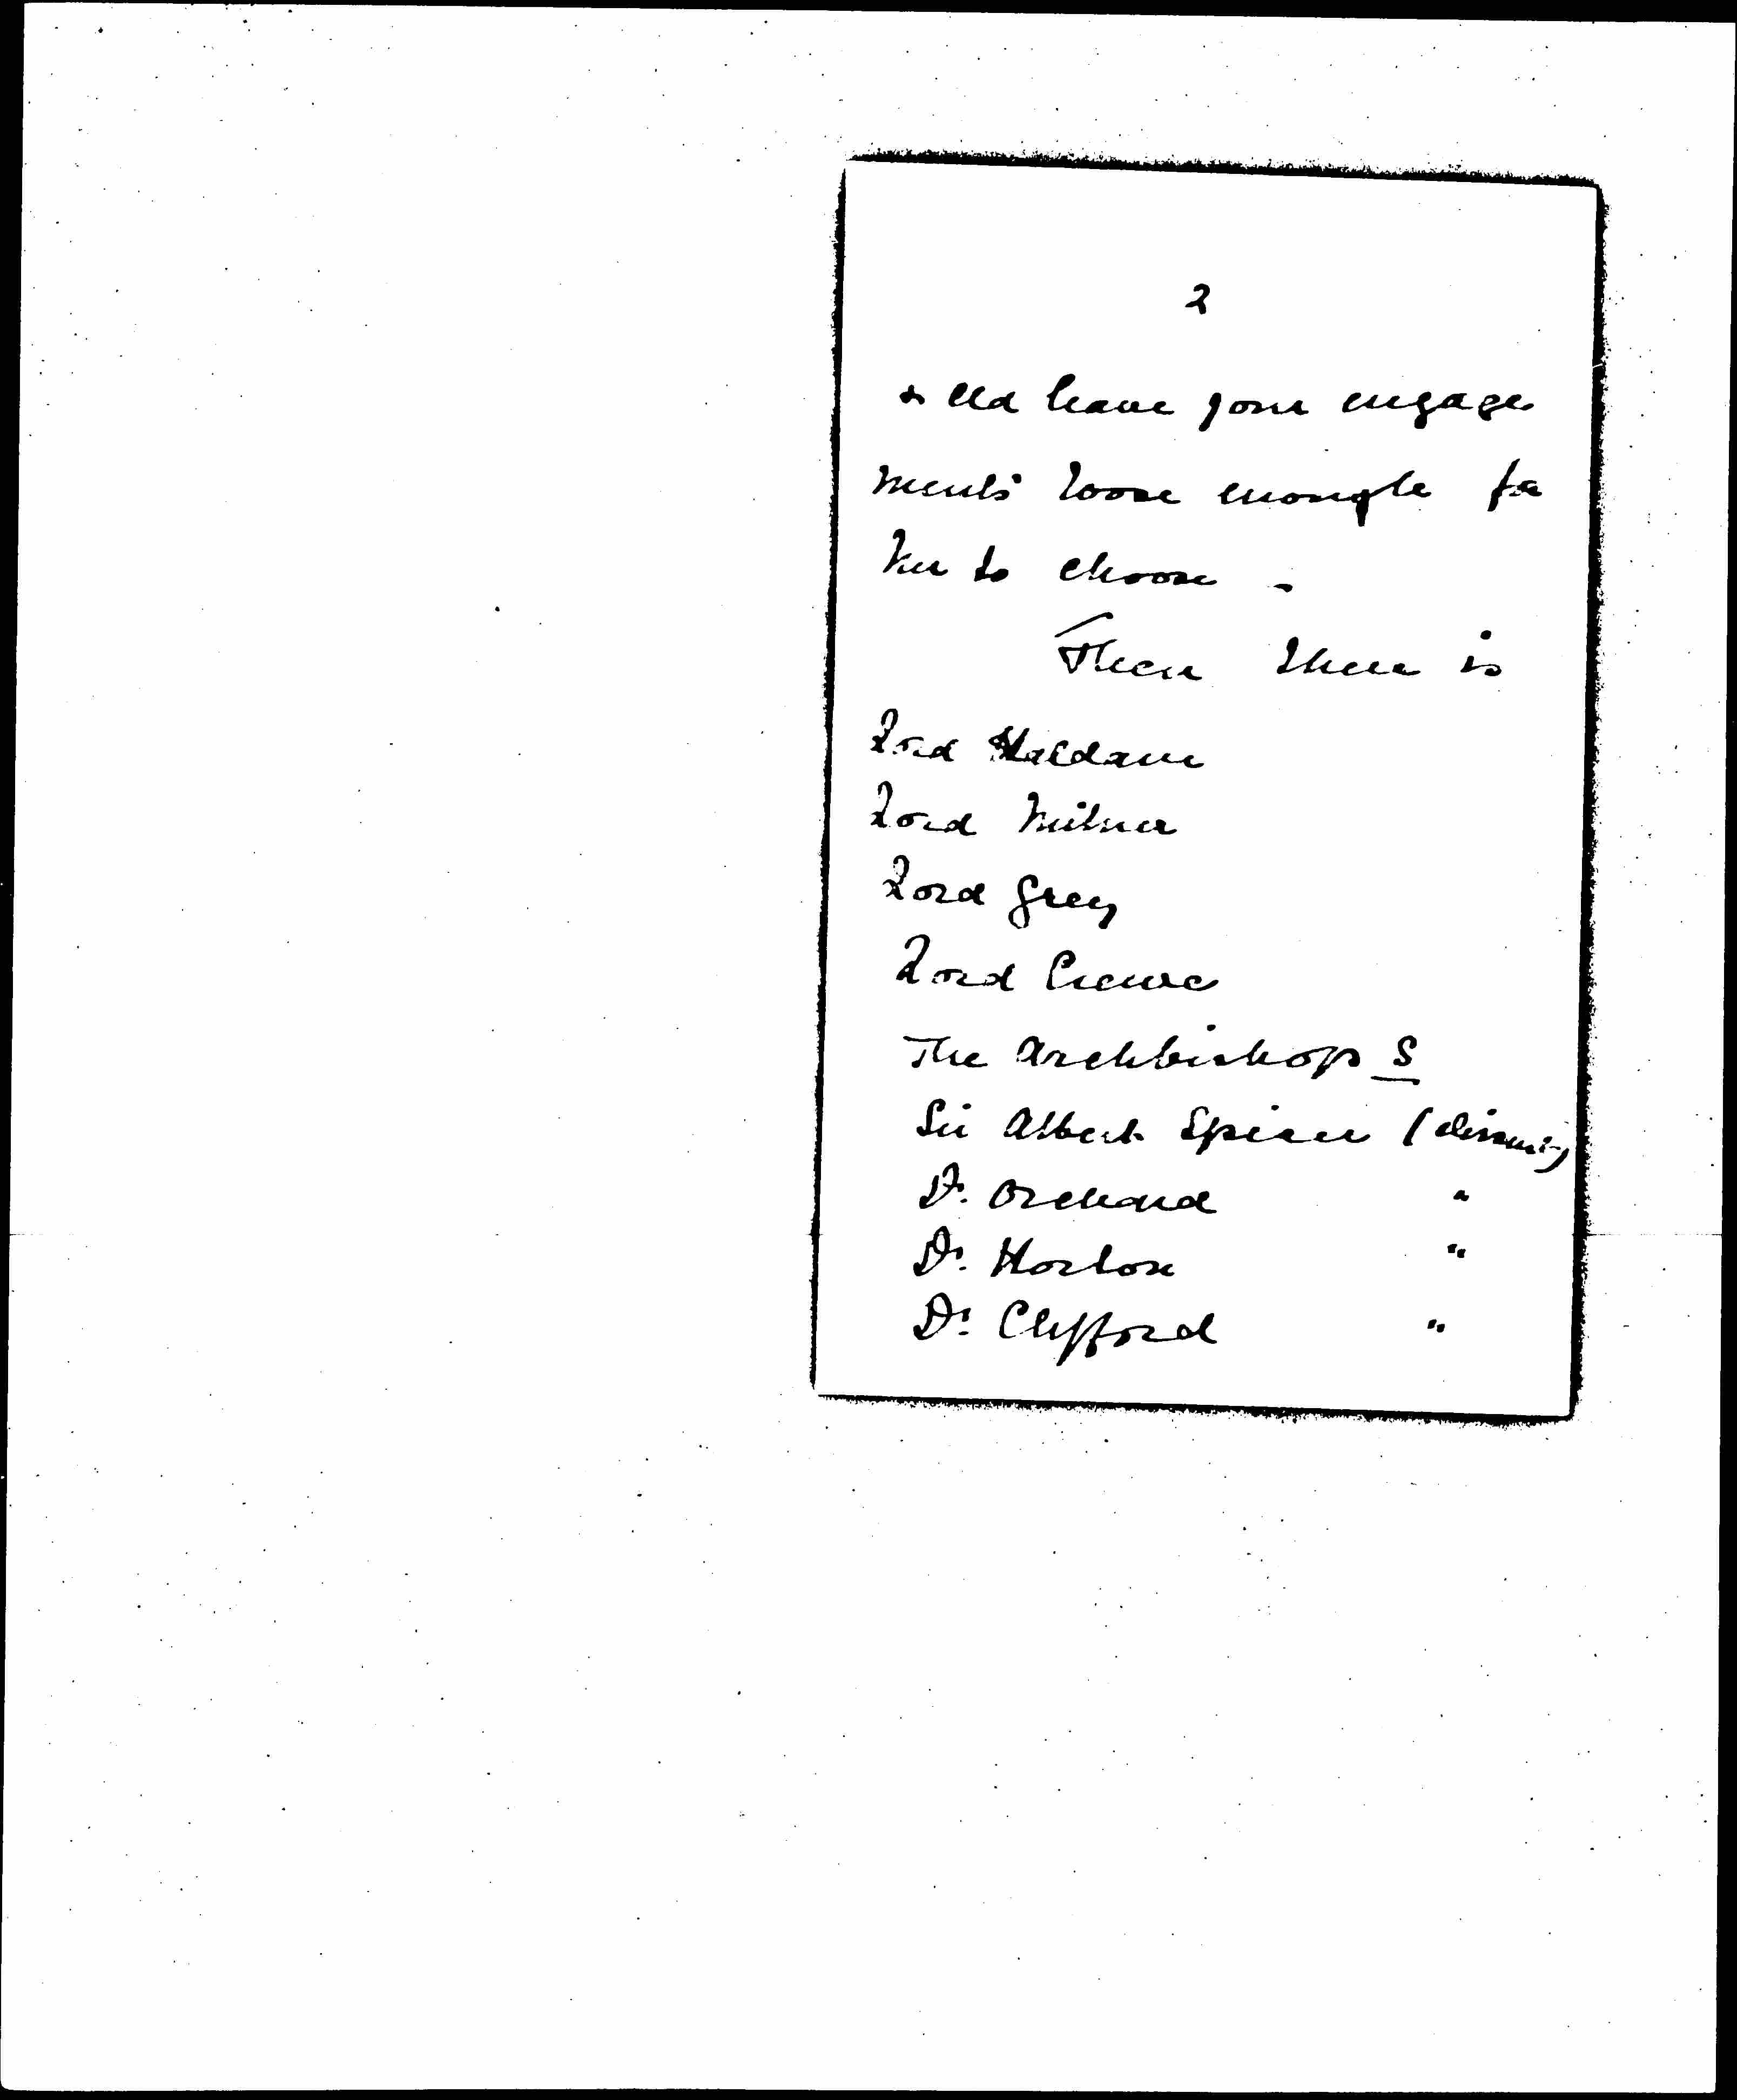 2
& cld leave your engage
ments loose enough for
her to choose -
Then there is
Lord Haldane
Lord Milner
Lord Grey
Lord Crewe
The Archbishops
Sir Albert Spicer (dissent-)
Dr. Orchard "
Dr. Horton "
Dr. Clifford "